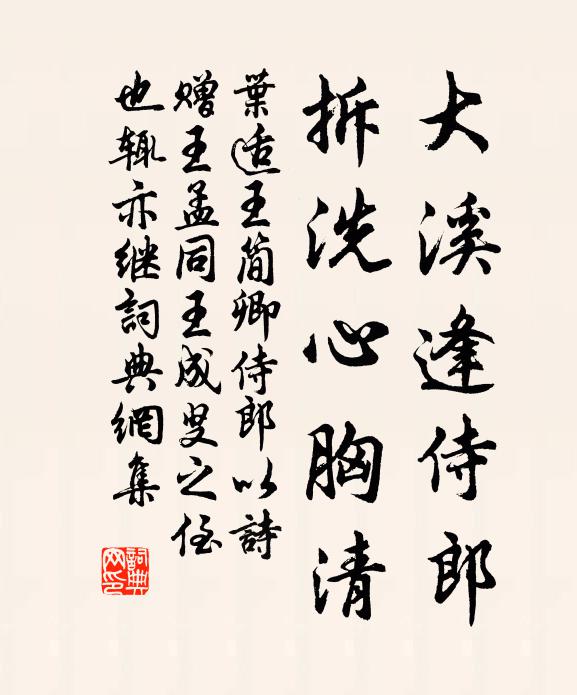 大溪逢侍郎
拆洗心胸清
葉适王簡卿侍郎以詩
贈王孟同王成叟之侄
也輒亦継詞典網集
詞典网印